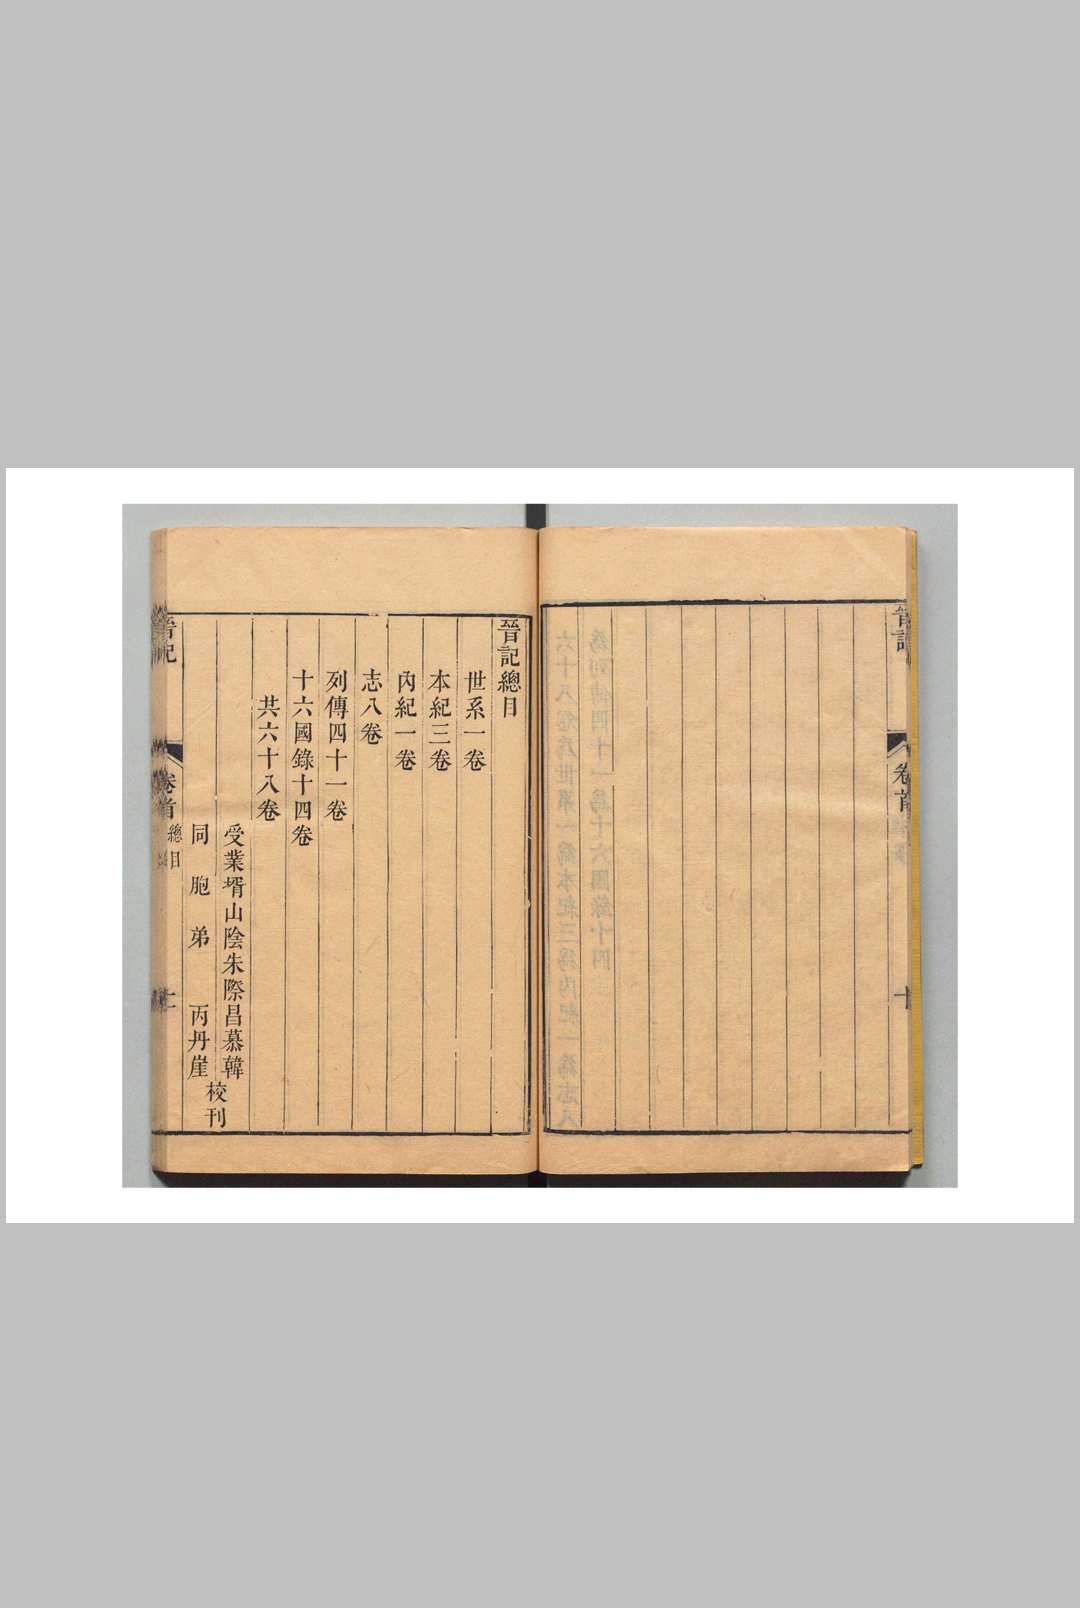 晉記
卷首
十
晉記總目
世系一卷
本紀三卷
內紀一卷
志八卷
列傳四十一卷
十六國錄十四卷
共六十八卷
受業壻山陰朱際昌慕韓
同胞弟 丙丹崖
校刊
晉記
卷首
總目